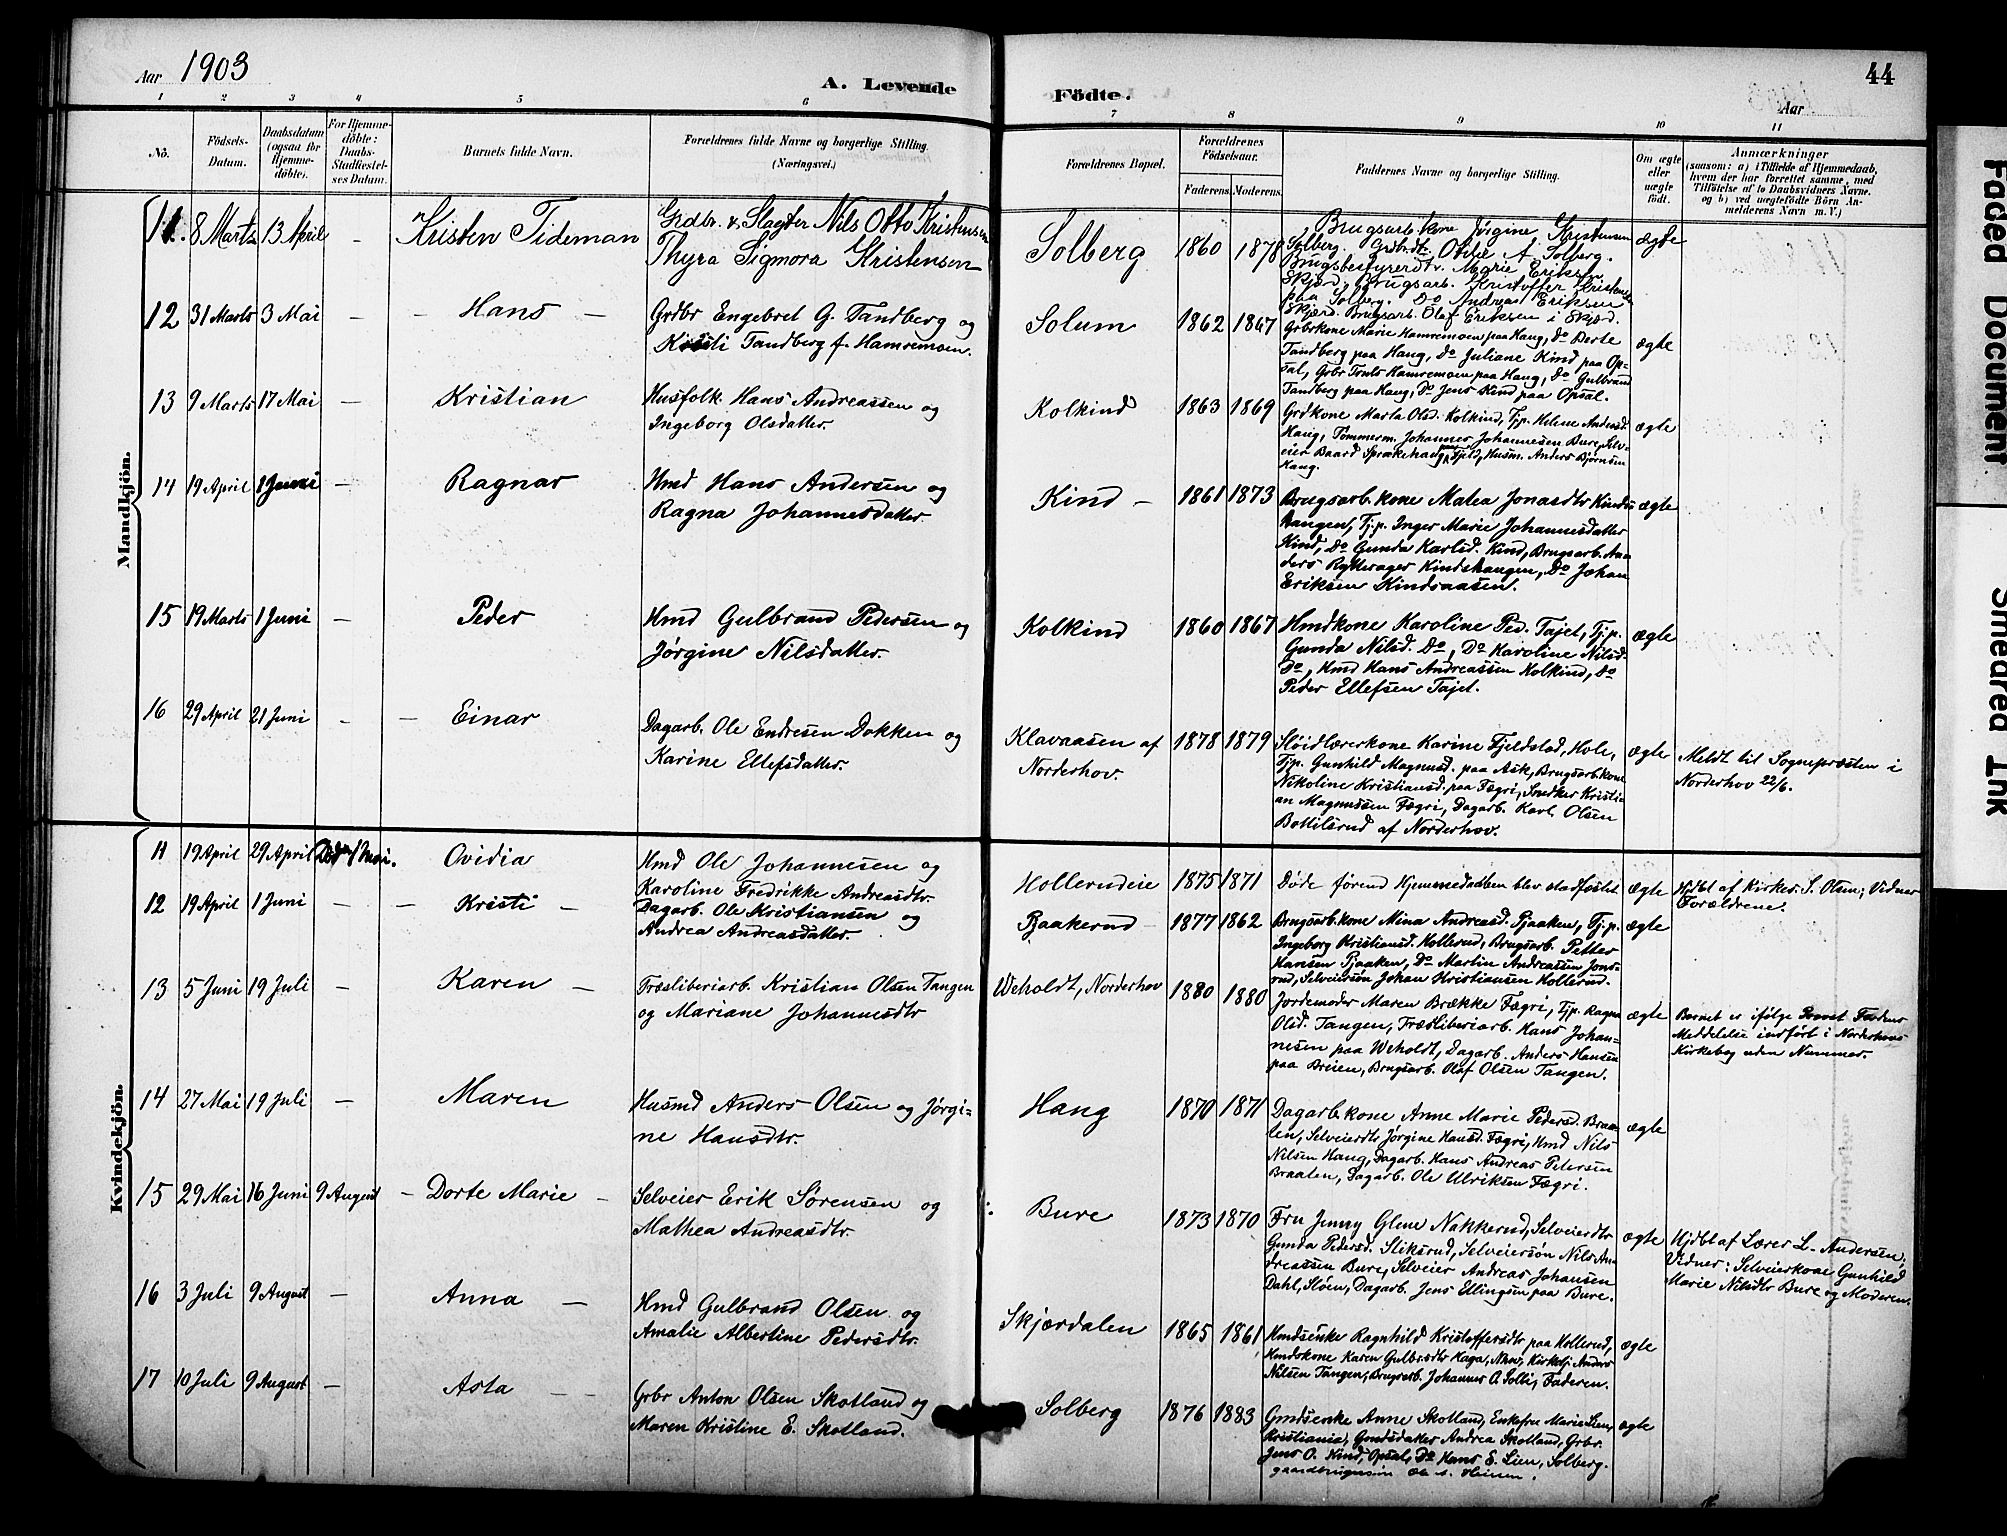 Aar 1903
A. Levende
Födte.
Aar
44
1 2 3 4 5 6 7 8 9 10 11
No.
Födsels-Datum.
Daabsdatum (ogsaa for Hjemme-döbte).
For Hjemme-döbte: Daabs-Stadfæstel-ses Datum.
Barnets fulde Navn.
Forældrenes fulde Navne og borgerlige Stilling.
(Næringsvei.)
Forældrenes Bopæl.
Forældrenes Födselsaar.
Faderens. Moderens.
Faddernes Navne og borgerlige Stilling.
Om ægte eller uægte födt.
Anmærkninger
(saasom: a) i Tilfælde af Hjemmedaab,
hvem der har forrettet samme, med
Tilföielse af to Daabsvidners Navne.
og b) ved uægtefödte Börn An-
melderens Navn m. V.)
Mandkjön.
11. 8 Marts 13 April - Kristen Tideman
Grdbr. & Slagter Nils Otto Kristensen
Thyra Sigmora Kristensen
Solberg 1860 1878
Brugsarb.kone Jørgine Kristensen
Solberg. Grdbrdtr. Otilie A. Solberg.
Brugsbestyrerdtr. Marie Eriksen
Skjørd, Brugsarb. Kristoffer Kristensen
paa Solberg. Do Andreas Eriksen
Skjørd. Brugsarb. Olaf Eriksen i Skjørd.
ægte
12 31 Marts 3 Mai - - Hans -
Grdbr Engebret G. Tandberg og
Kisti Tandberg f. Hamremoen.
Solum 1862 1867
Grbrkone Marie Hamremoen paa Haug, Do Berte
Tandberg paa Haug, Do Juliane Kind paa Op-
sal, Grbr Truls Hamremoen paa Haug, Do Gulbrand
Tandberg paa Haug, Do Jens Kind paa Opsal.
ægte
13 9 Marts 17 Mai - Kristian
Husfolk Hans Andreassen og
Ingeborg Olsdatter.
Kolkind 1863 1869
Grdkone Marta Olsd. Kolkind, Tjp. Helene Andersd.
Haug, Tømmerm. Johannes Johannesen Bure, Selv-
eier Baard Sprækehaug paa Fjeld, Husm. Anders Bjørnsen
Haug.
ægte
14 19 April 1 Juni - Ragnar
Hmd Hans Andersen og
Ragna Johannesdatter.
Kind - 1861 1873
Brugsarb.kone Malea Jonasdtr Kinds-
haugen, Tj.p. Inger Marie Johannesdatter
Kind, Do Gunda Karlsd. Kind, Brugsarb. An-
ders Rytterager Kindshaugen, Do Johan
Eriksen Kindsaasen.
ægte
15 19 Marts 1 Juni - Peder
Hmd Gulbrand Pedersen og
Jørgine Nilsdatter.
Kolkind 1860 1867
Hmdkone Karoline Ped. Tajet, Tj.p.
Gunda Nilsd. Do, Do Karoline Nilsd.
Do, Hmd Hans Andreassen Kolkind, Do
Peder Ellefsen Tajet.
ægte
16 29 April 21 Juni - - Einar
Dagarb. Ole Endresen Dokken og
Karine Ellefsdatter.
Klavaasen af
Norderhov.
1878 1879
Sløidlærerkone Karine Fjeldstad, Hole,
Tjp. Gunhild Magnusd. paa Ask, Brugsarb.kone
Nikoline Kristiansd. paa Fægri, Snedker Kristi-
an Magnussen Fægri, Dagarb. Karl Olsen
Bottilsrud af Norderhov.
ægte
Meldt til Sognepræsten i
Norderhov 22/6.
Kvindekjön.
11 19 April 29 April Død 1 Mai. Ovidia
Hmd Ole Johannesen og
Karoline Fredrikke Andreasdtr.
Hollerudeie 1875 1871
Døde førend Hjemmedaaben blev stadfæstet
ægte
Hjdbt af Kirkes. S. Olsen; Vidner
Forældrene.
12 19 April 1 Juni - - Kristi -
Dagarb. Ole Kristiansen og
Andrea Andreasdatter.
Baakerud 1877 1862
Brugsarb.kone Mina Andreasd. Pjaaken, Tj.p.
Ingeborg Kristiansd. Hollerud, Brugsarb. Petter
Hansen Pjaaken, Do Martin Andreassen Jons-
rud, Selveiersøn Johan Kristiansen Hollerud.
ægte
13 5 Juni 19 Juli - Karen -
Træsliberiarb. Kristian Olsen Tangen
og Mariane Johannesdtr
Veholdt, Norderhov 1880 1880
Jordemoder Maren Brække Fægri, Tjp. Ragna
Olsd. Tangen, Træsliberiarb. Hans Johan-
nesen paa Veholdt, Dagarb. Anders Hansen
paa Breien, Brugsarb. Olaf Olsen Tangen.
ægte
Barnet er ifølge Provst
Meddelelse indført i Norderhovs
Kirkebog uden Nummer.
14 27 Mai 19 Juli - Maren
Husmd Anders Olsen og Jørgi-
ne Hansdtr.
Haug 1870 1871
Dagarb.kone Anne Marie Pedersd. Braa-
ten, Selveierdtr Jørgine Hansd. Fægri, Hmd Nils
Nilsen Haug, Dagarb. Hans Andreas Petersen
Braaten, Dagarb. Ole Ulriksen Fægri.
ægte
15 29 Mai 16 Juni 9 August - Dorte Marie -
Selveier Erik Sørensen og
Mathea Andreasdtr.
Bure 1873 1870
Fru Jenny Glene Nakkerud, Selveierdtr
Gunda Pedersd. Sliksrud, Selveiersøn Nils An-
dreassen Bure, Selveier Andreas Johansen
Dahl, Sløen, Dagarb. Jens Ellingsen paa Bure.
ægte
Hjdbt af Lærer L. Andersen,
Vidner: Selveierkone Gunhild
Marie Nilsdtr Bure og Moderen.
16 3 Juli 9 August - Anna -
Hmd Gulbrand Olsen og
Amalie Albertine Pedersdtr.
Skjærdalen 1865 1861
Hmdsenke Ragnhild Kristoffersdtr paa Hollerud,
Hmdskone Karen Gulbrsdtr Haga, Nhov, Kirketj. Anders
Nilsen Tangen, Brugsarb. Johannes A. Solbj, Faderen.
ægte
17 10 Juli 9 August - Asta - -
Grbr Anton Olsen Skotland og
Maren Kristine E. Skotland.
Solberg 1876 1883
Gmdsenke Anne Skotland, Enkefru Marie Lien,
Kristiania, Gmdsdatter Andrea Skotland, Grbr.
Jens O. Kind, Opsal, Do Hans E. Lien, Solberg.
ægte
Faded Document
Smeared Ink